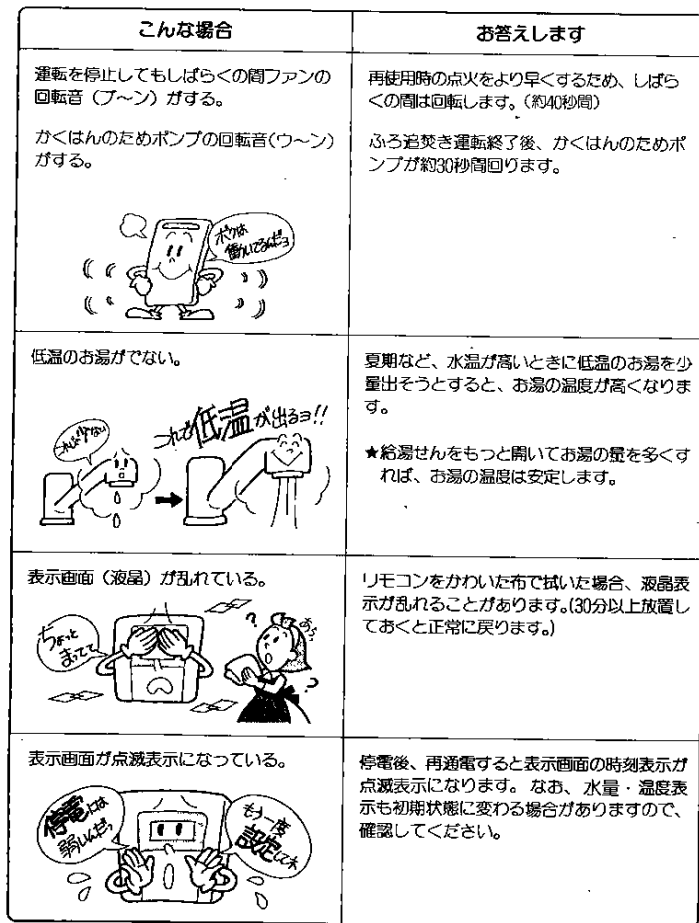 こんな場合
お答えします
運転を停止してもしばらくの間ファンの
回転音（ブ〜ン）がする。
かくはんのためポンプの回転音（ウ〜ン）
がする。
ボクは
働いてるんだヨ
再使用時の点火をより早くするため、しばら
くの間は回転します。（約40秒間）
ふろ追焚き運転終了後、かくはんのためポ
ンプが約30秒間回ります。
低温のお湯がでない。
これじゃ少ない
これで低温が出るヨ!!
夏期など、水温が高いときに低温のお湯を少
量出そうとすると、お湯の温度が高くなりま
す。
★給湯せんをもっと開いてお湯の量を多くす
れば、お湯の温度は安定します。
表示画面（液晶）が乱れている。
ちょっと
まってて
?
あら
?
リモコンをかわいた布で拭いた場合、液晶表
示が乱れることがあります。（30分以上放置し
ておくと正常に戻ります。）
表示画面が点滅表示になっている。
停電には
弱いんだっ
もう一度
設定してネ
停電後、再通電すると表示画面の時刻表示が
点滅表示になります。 なお、水量・温度表
示も初期状態に変わる場合がありますので、
確認してください。